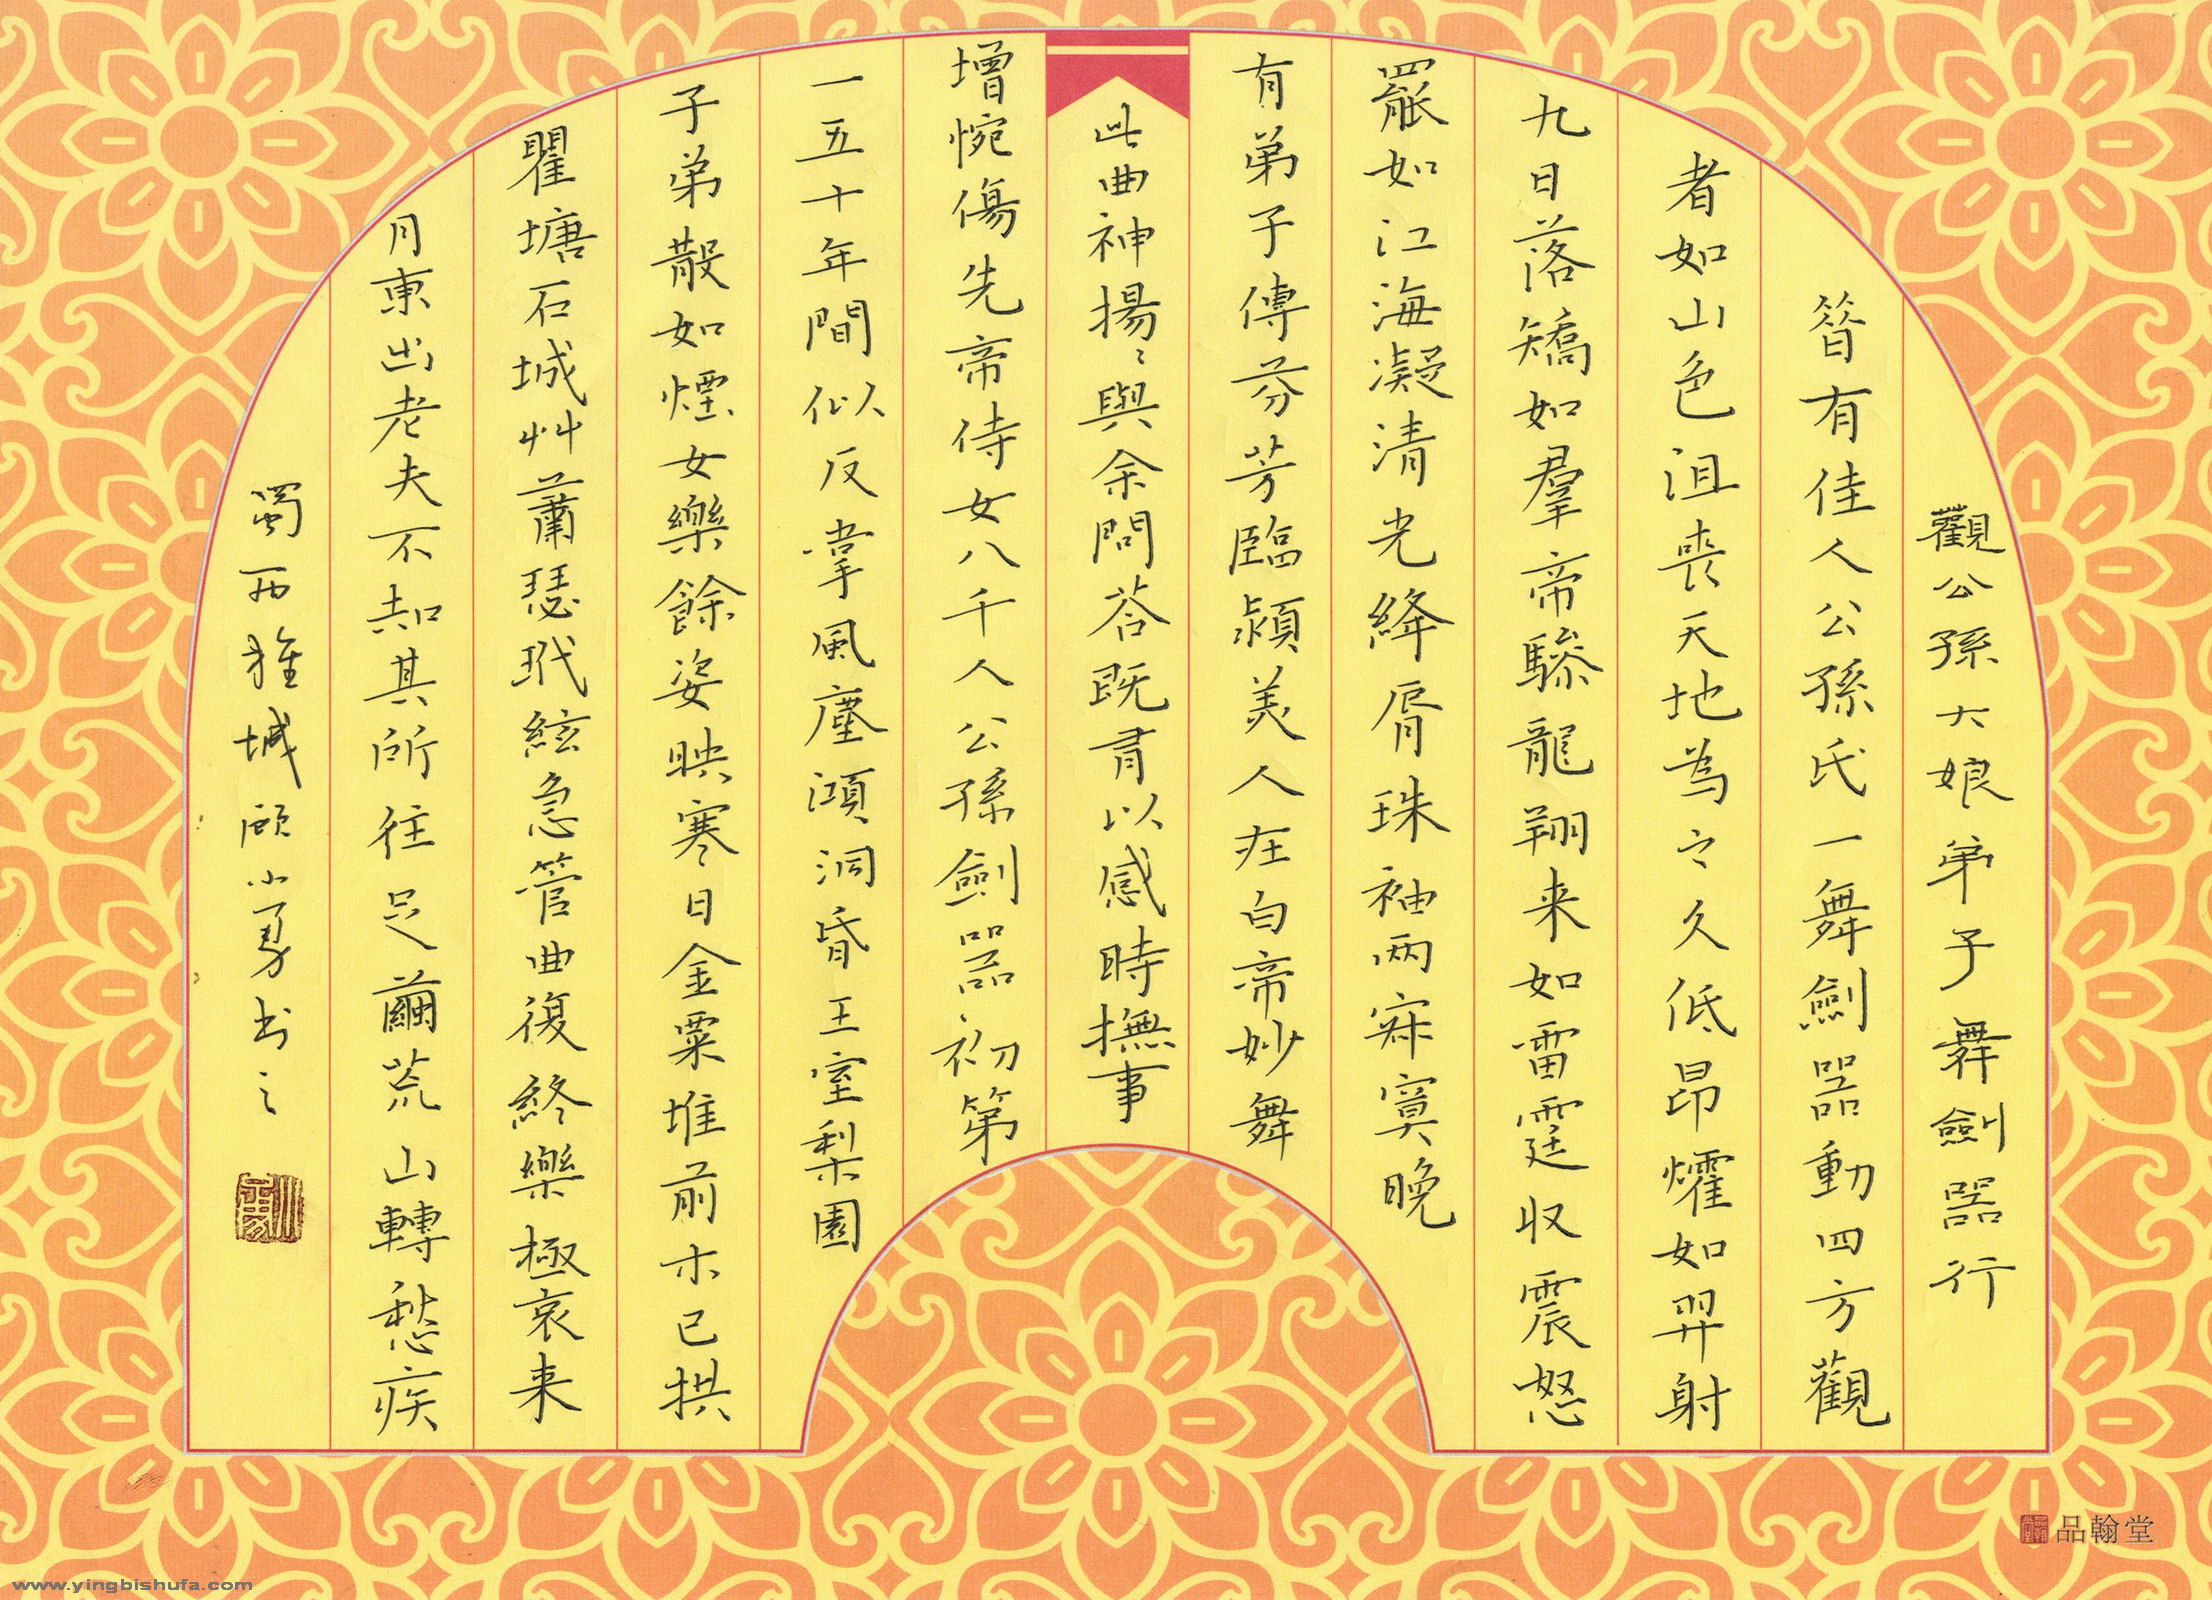 觀公孫大娘弟子舞劍器行
昝有佳人公孫氏一舞劍器動四方觀
者如山色沮喪天地為之久低昂㸌如羿射
九日落矯如羣帝驂龍翔来如雷霆收震怒
罷如江海凝清光絳脣珠袖兩寂寞晚
有弟子傳芬芳臨潁美人在白帝妙舞
此曲神揚〻與余問荅既有以感時撫事
增惋傷先帝侍女八千人公孫劍器初第
一五十年間似反掌風塵澒洞昏王室梨園
子弟散如煙女樂餘姿映寒日金粟堆前木已拱
瞿塘石城艸蕭瑟玳絃急管曲復終樂極哀来
月東出老夫不知其所往足繭荒山轉愁疾
蜀西雅城顧小勇书之
品翰堂
www.yingbishufa.com